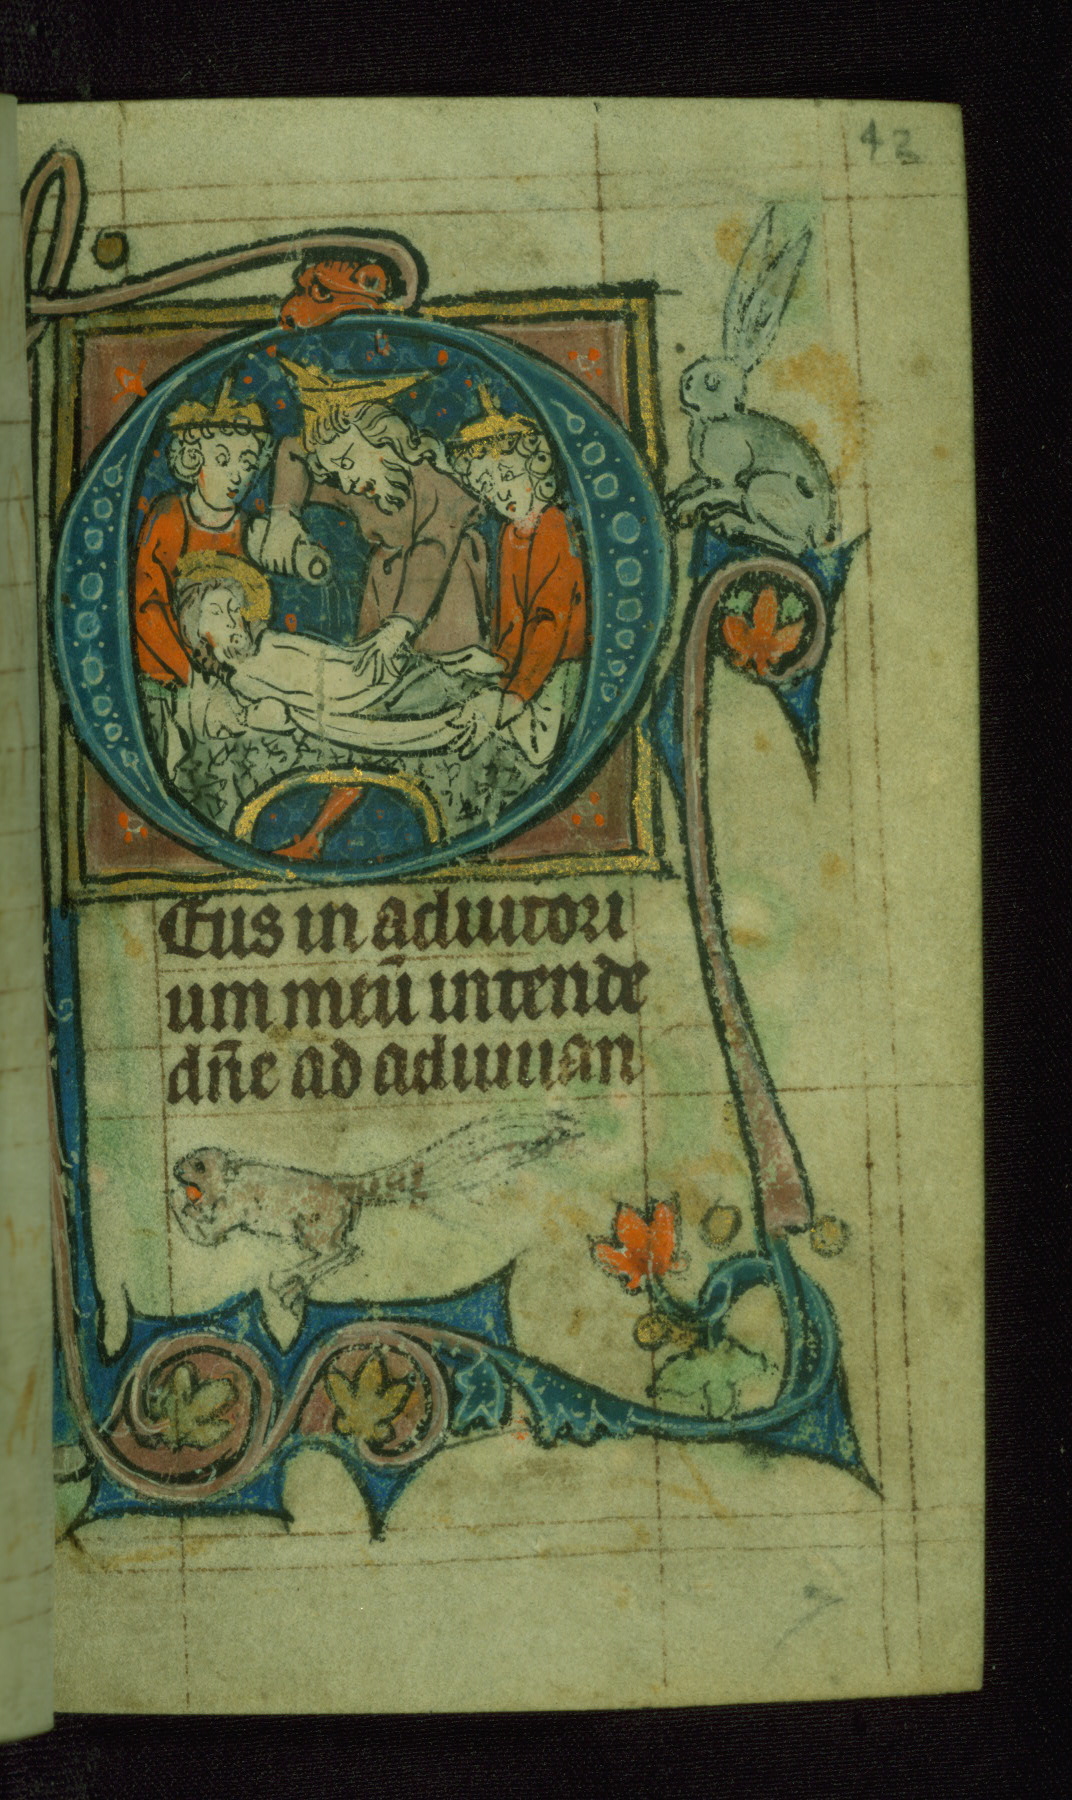 43
Eus in adiutori
um meū intende
dn̄e ad adiuuan